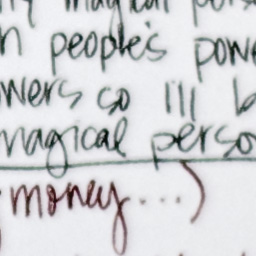 magical pers
people's powe
wers so I'll b
magical perso
money...)